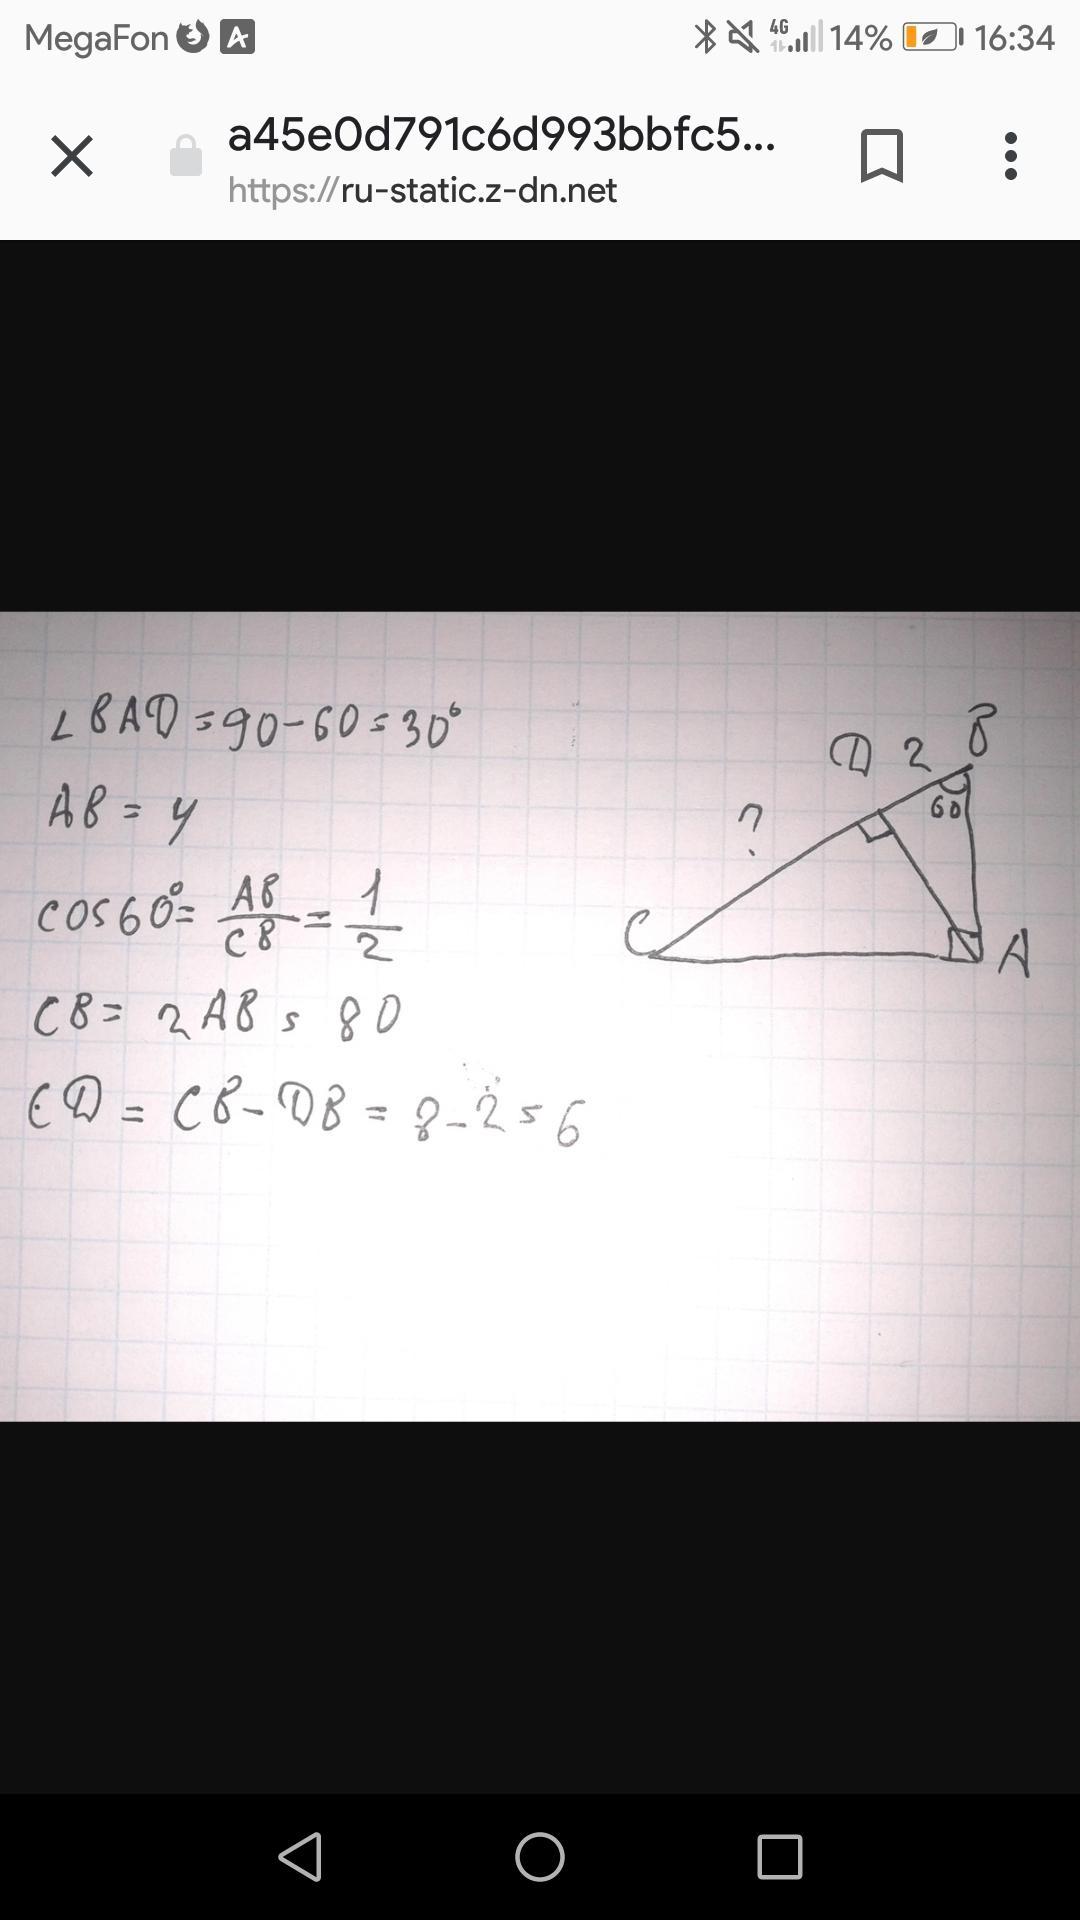 MegaFon 4G 14% 16:34
a45e0d791c6d993bbfc5...
https://ru-static.z-dn.net
∠BAD = 90 - 60 = 30°
AB = 4
cos60° = AB/CB = 1/2
CB = 2AB = 80
CD = CB - DB = 8 - 2 = 6
D 2 B
60
?
C
A